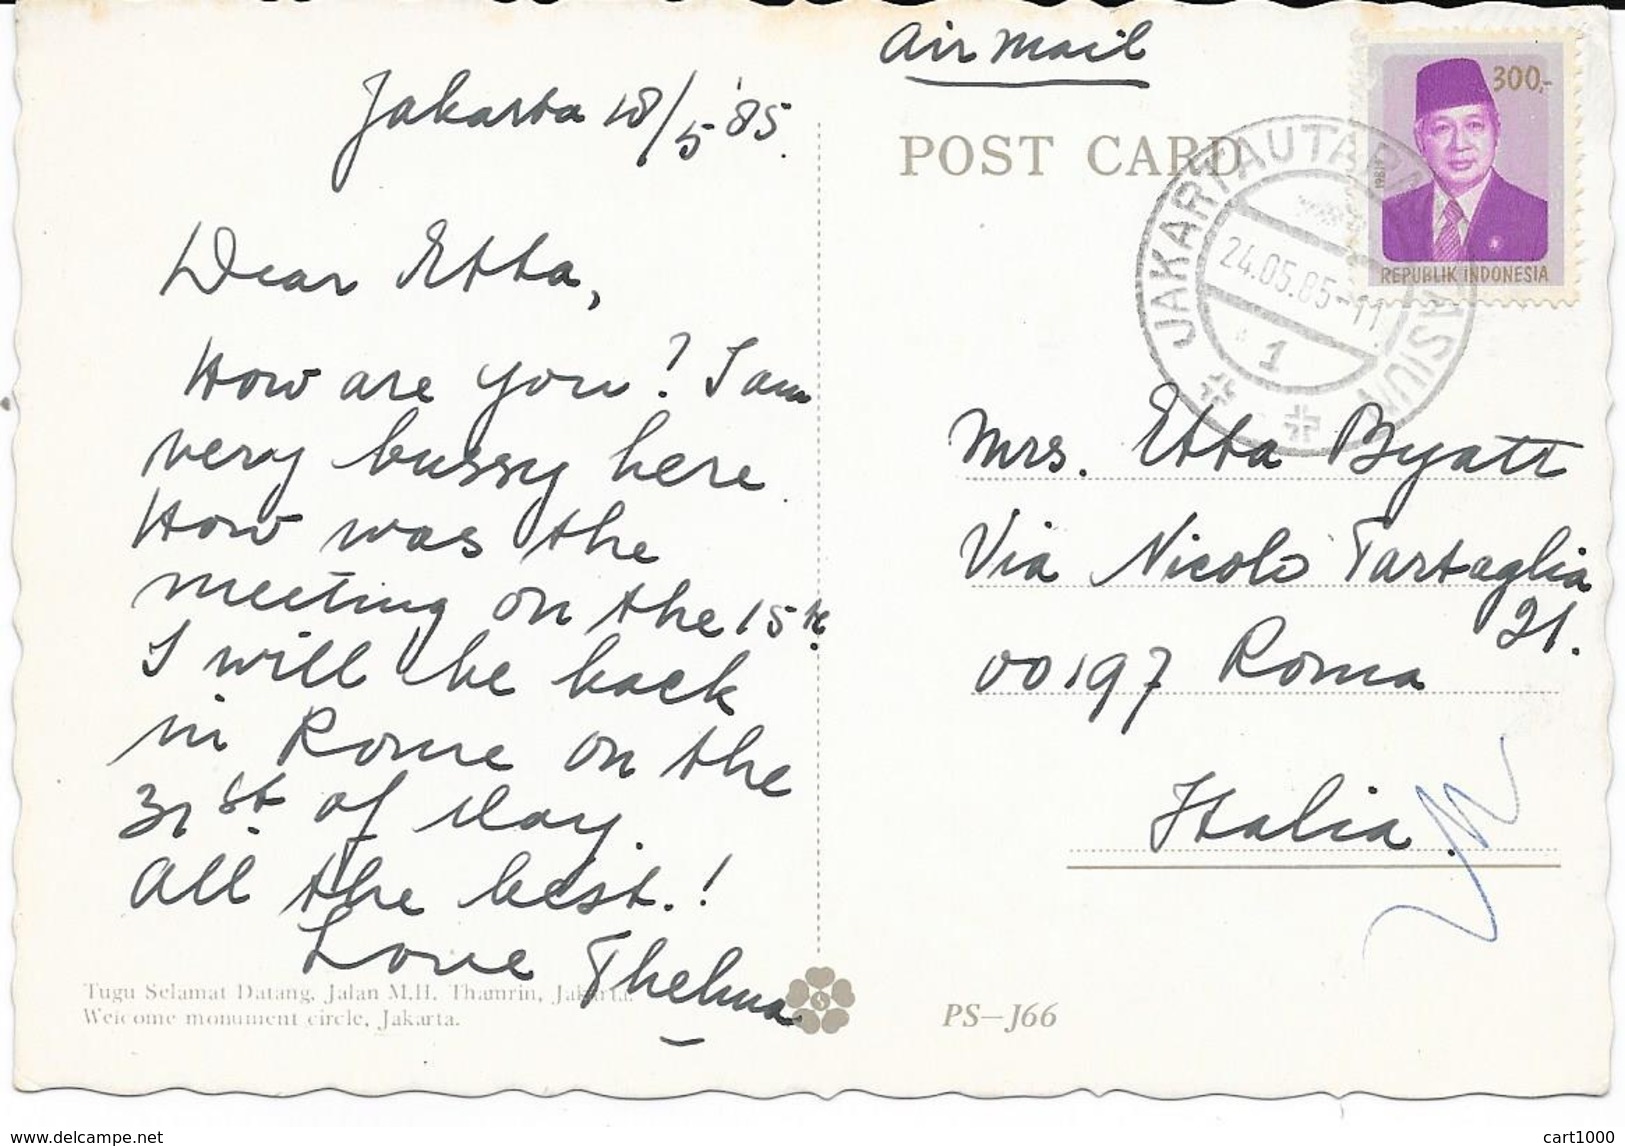 Air mail
Jakarta 18/5 '85.
Dear Etta,
How are you? I am
very bussy here.
How was the
meeting on the 15th.
I will be back
in Rome on the
31st. of May.
All the best.!
Love Thelma
Tugu Selamat Datang, Jalan M.H. Thamrin, Jakarta.
Welcome monument circle, Jakarta.
POST CARD
300,-
1981
REPUBLIK INDONESIA
JAKARTAUTARA
24.05.85-11
1
Mrs. Etta Byatt
Via Nicolo Tartaglia
21.
00197 Roma
Italia.
PS–J66
www.delcampe.net
cart1000